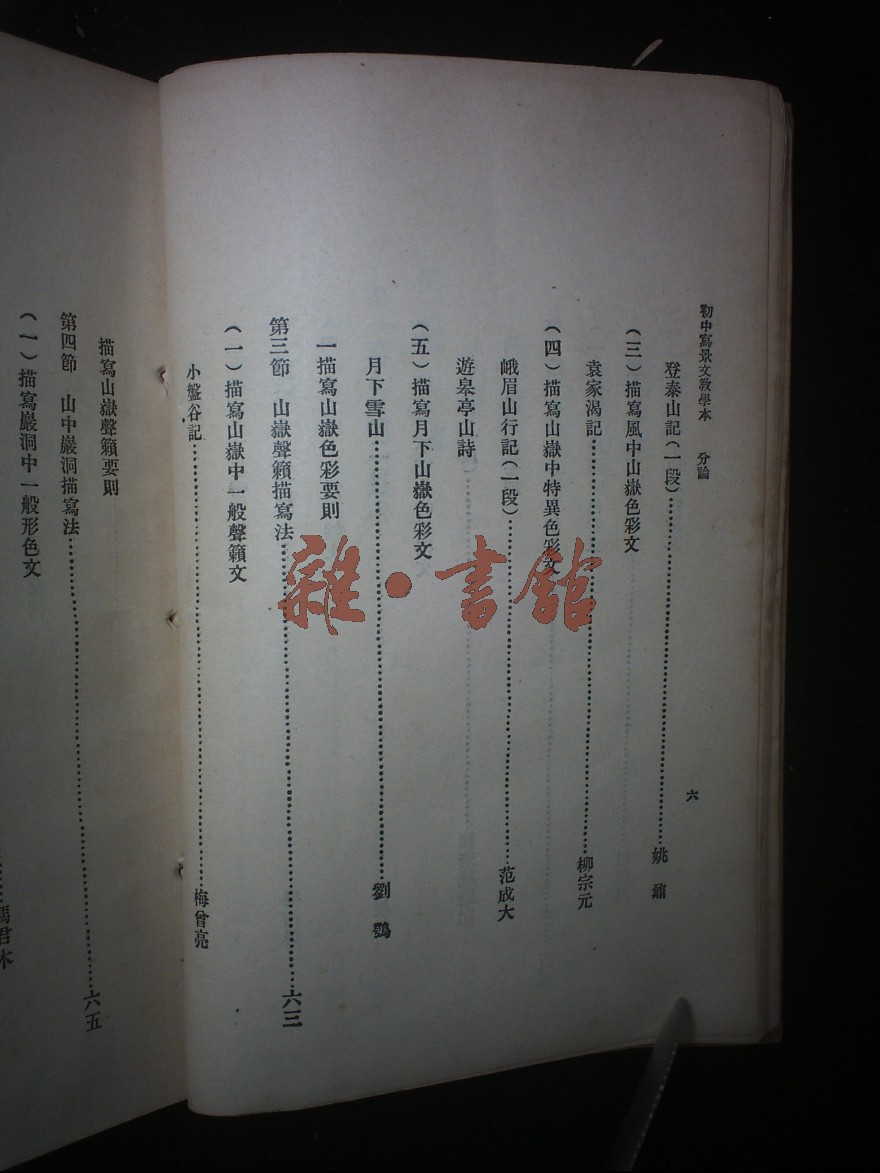 初中寫景文教學本　分論
六
登泰山記(一段)……姚鼐
(三)描寫風中山嶽色彩文
袁家渴記……柳宗元
(四)描寫山嶽中特異色彩文
峨眉山行記(一段)……范成大
遊皋亭山詩
(五)描寫月下山嶽色彩文
月下雪山……劉鶚
一描寫山嶽色彩要則
第三節　山嶽聲籟描寫法……六三
(一)描寫山嶽中一般聲籟文
小盤谷記……梅曾亮
描寫山嶽聲籟要則
第四節　山中巖洞描寫法……六五
(一)描寫巖洞中一般形色文
馮君木
雜·書館